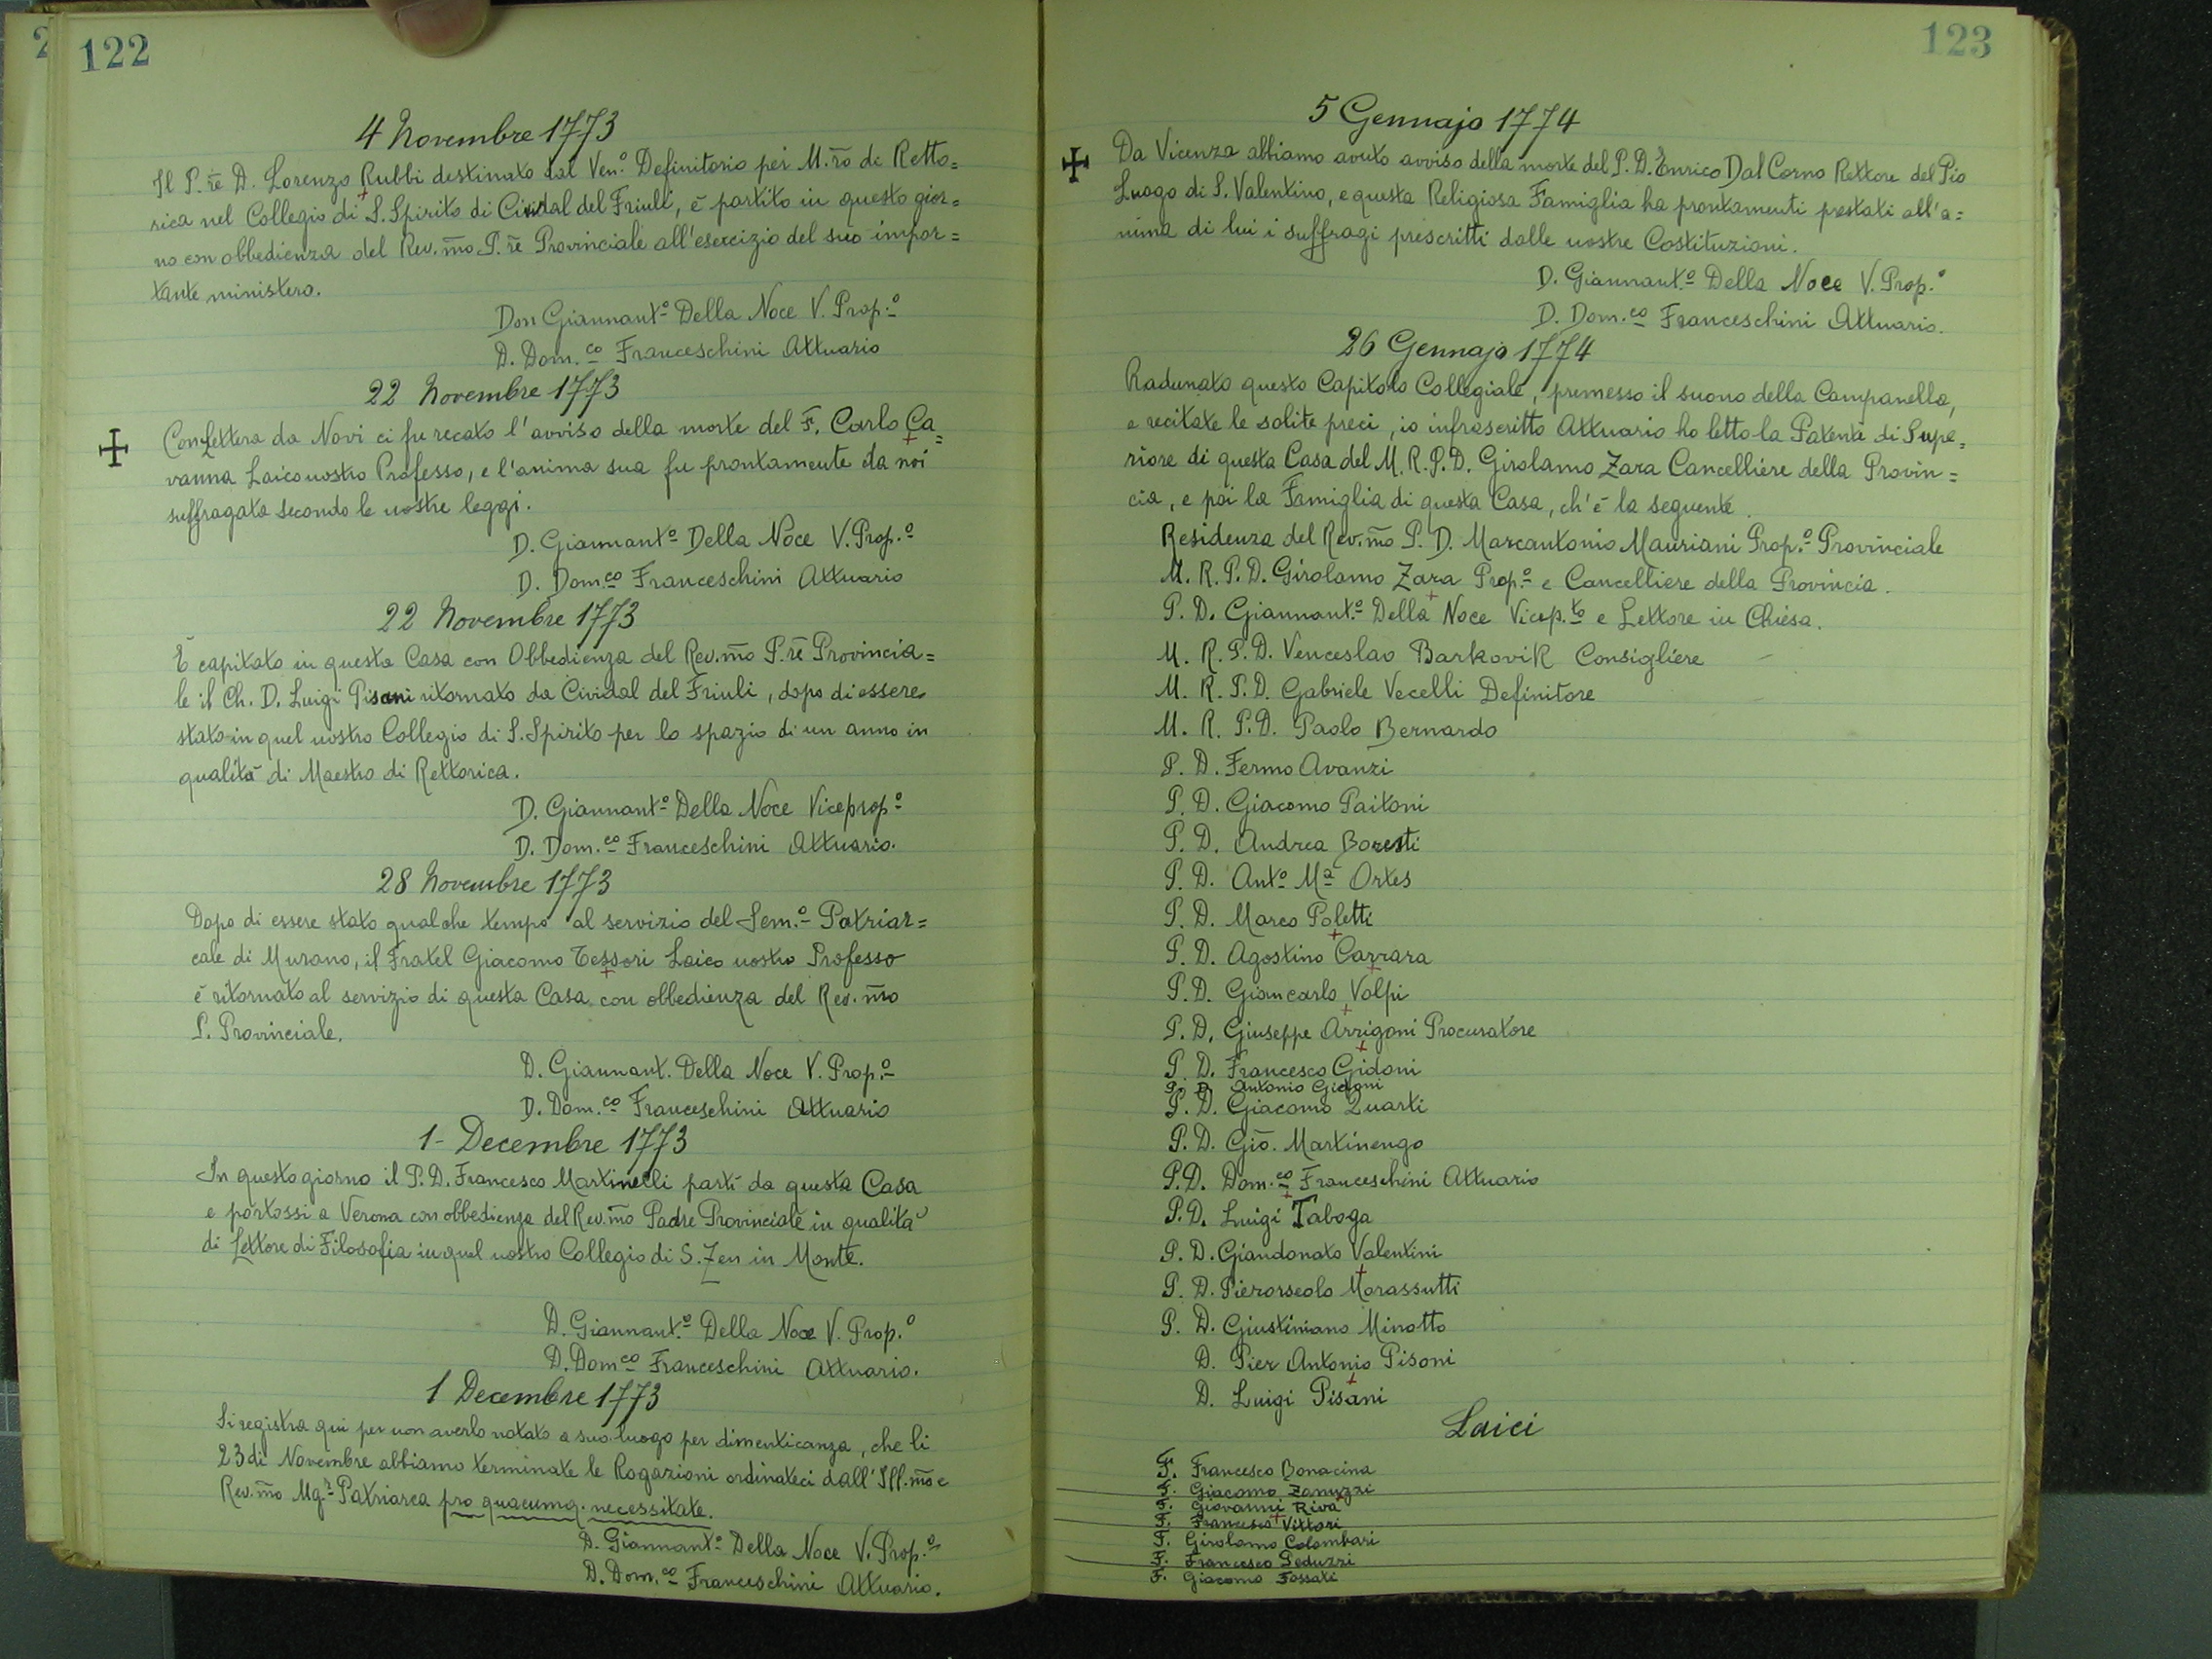 122
4 Novembre 1773
Il P.re D. Lorenzo Rubbi destinato dal Ven.o Definitorio per M.ro di Retto=
rica nel Collegio di S. Spirito di Cividal del Friuli, è partito in questo gior=
no con obbedienza del Rev.mo P.re Provinciale all'esercizio del suo impor=
tante ministero.
Don Giannant.o Della Noce V. Prop.o
D. Dom.co Franceschini Attuario
22 Novembre 1773
Con Lettera da Novi ci fu recato l'avviso della morte del F. Carlo Ca=
vanna Laico nostro Professo, e l'anima sua fu prontamente da noi
suffragata secondo le nostre leggi.
D. Giannant.o Della Noce V. Prop.o
D. Dom.co Franceschini Attuario
22 Novembre 1773
È capitato in questa Casa con Obbedienza del Rev.mo P.re Provincia=
le il Ch. D. Luigi Pisani ritornato da Cividal del Friuli, dopo di essere
stato in quel nostro Collegio di S. Spirito per lo spazio di un anno in
qualità di Maestro di Rettorica.
D. Giannant.o Della Noce Viceprop.o
D. Dom.co Franceschini Attuario.
28 Novembre 1773
Dopo di essere stato qualche tempo al servizio del Sem.o Patriar=
cale di Murano, il Fratel Giacomo Tessori Laico nostro Professo
è ritornato al servizio di questa Casa con obbedienza del Rev.mo
P. Provinciale.
D. Giannant. Della Noce V. Prop.o
D. Dom.co Franceschini Attuario
1 - Decembre 1773
In questo giorno il P. D. Francesco Martinelli partì da questa Casa
e portossi a Verona con obbedienza del Rev.mo Padre Provinciale in qualità
di Lettore di Filosofia in quel nostro Collegio di S. Zen in Monte.
D. Giannant.o Della Noce V. Prop.o
D. Dom.co Franceschini Attuario.
1 Decembre 1773
Si registra qui per non averlo notato a suo luogo per dimenticanza, che li
23 di Novembre abbiamo terminate le Rogazioni ordinateci dall'Ill.mo e
Rev.mo Mg.r Patriarca pro quacumq. necessitate.
D. Giannant.o Della Noce V. Prop.o
D. Dom.co Franceschini Attuario.
123
5 Gennajo 1774
Da Vicenza abbiamo avuto avviso della morte del P. D. Enrico Dal Corno Rettore del Pio
Luogo di S. Valentino, e questa Religiosa Famiglia ha prontamenti prestati all'a=
nima di lui i suffragi prescritti dalle nostre Costituzioni.
D. Giannant.o Della Noce V. Prop.o
D. Dom.co Franceschini Attuario.
26 Gennajo 1774
Radunato questo Capitolo Collegiale, premesso il suono della Campanella,
e recitate le solite preci, io infrascritto Attuario ho letto la Patente di Supe=
riore di questa Casa del M. R. P. D. Girolamo Zara Cancelliere della Provin=
cia, e poi la Famiglia di questa Casa, ch'è la seguente.
Residenza del Rev.mo P. D. Marcantonio Mauriani Prop.o Provinciale
M. R. P. D. Girolamo Zara Prop.o e Cancelliere della Provincia.
P. D. Giannant.o Della Noce Vicep.to e Lettore in Chiesa.
M. R. P. D. Venceslao Barkovik Consigliere
M. R. P. D. Gabriele Vecelli Definitore
M. R. P. D. Paolo Bernardo
P. D. Fermo Avanzi
P. D. Giacomo Paitoni
P. D. Andrea Boresti
P. D. Ant.o M.a Ortes
P. D. Marco Poletti
P. D. Agostino Carrara
P. D. Giancarlo Volpi
P. D. Giuseppe Arrigoni Procuratore
P. D. Francesco Gidoni
P. D. Antonio Gidoni
P. D. Giacomo Quarti
P. D. Gio. Martinengo
P. D. Dom.co Franceschini Attuario
P. D. Luigi Taboga
P. D. Giandonato Valentini
P. D. Pierorseolo Morassutti
P. D. Giustiniano Minotto
D. Pier Antonio Pisoni
D. Luigi Pisani
Laici
F. Francesco Bonacina
F. Giacomo Zanuzzi
F. Giovanni Riva
F. Francesco Vittori
F. Girolamo Colombari
F. Francesco Peduzzi
F. Giacomo Fossati